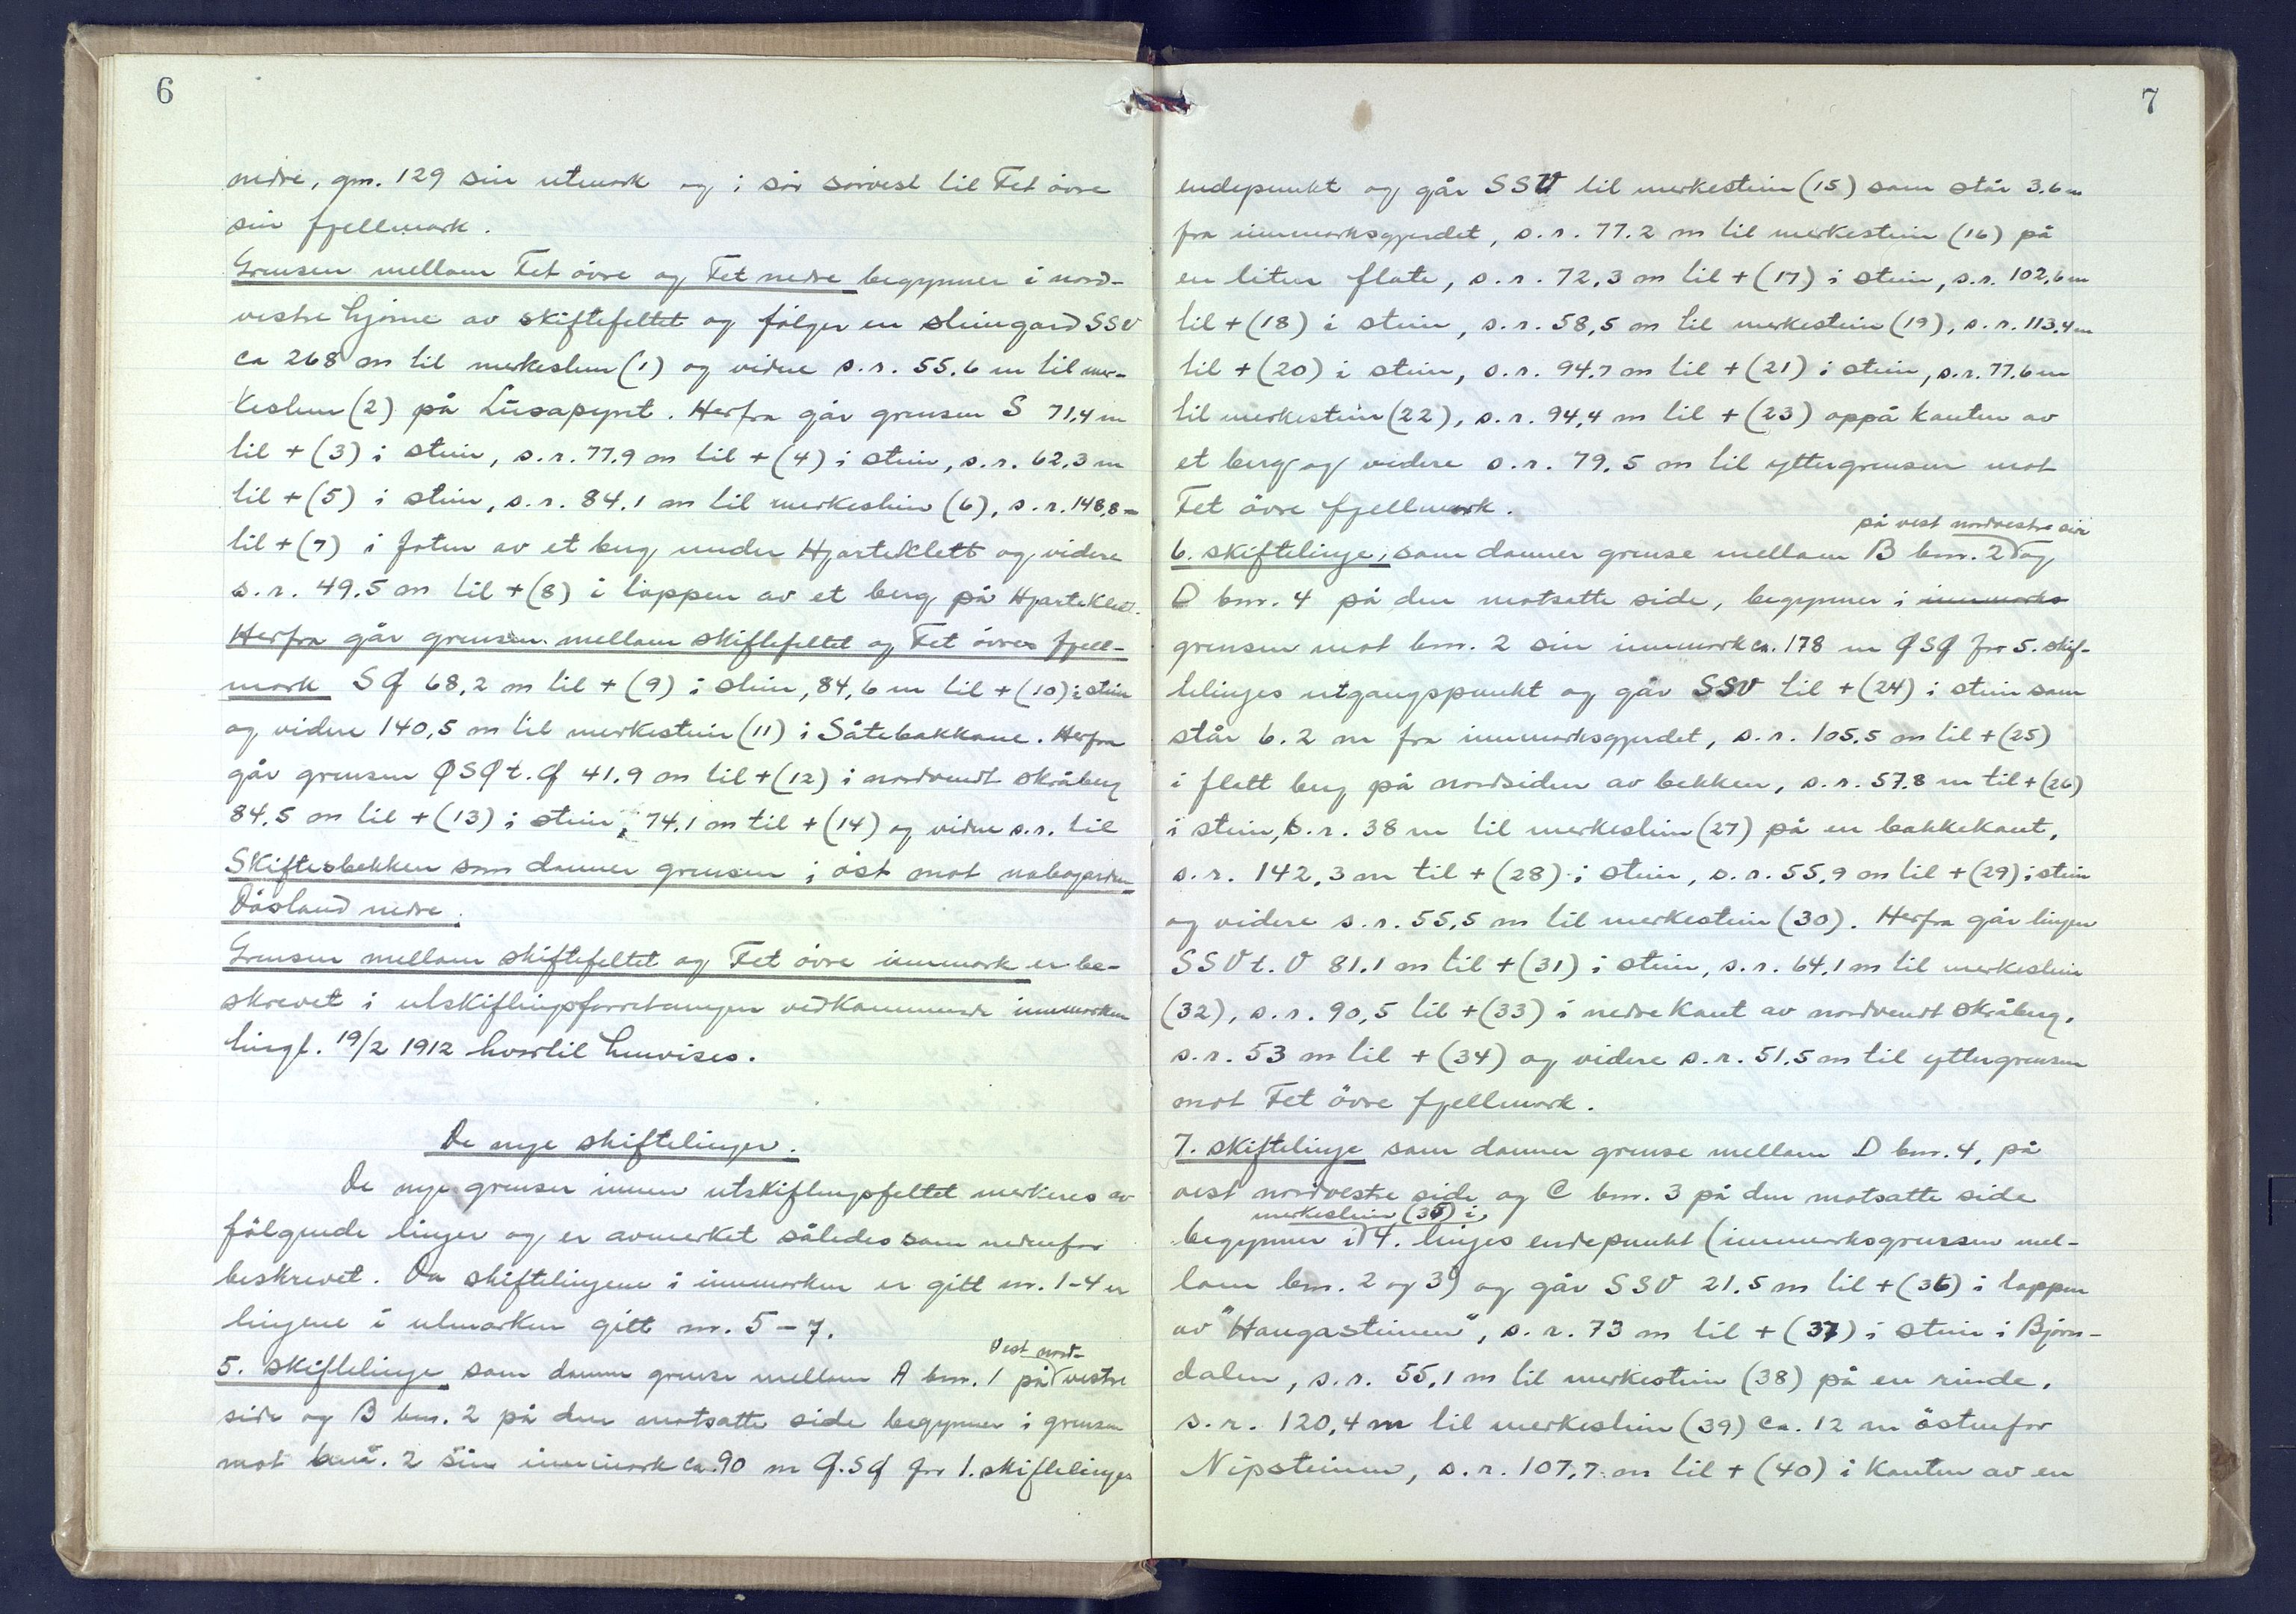 6
nedre, gm. 129 sin utmark og i sör sörvest til Fet övre
sin fjellmark.
Grensen mellom Fet övre og Fet nedre begynner i nord-
vestre hjörne av skiftefeltet og fölger en steingard SSV
ca 268 m til merkestein (1) og videre s.r. 55.6 m til mer-
kestein (2) på Lusapynt. Herfra går grensen S 71,4 m
til + (3) i stein, s.r. 77.9 m til + (4) i stein, s.r. 62.3 m
til + (5) i stein, s.r. 84.1 m til merkestein (6), s.r. 148,8 m
til + (7) i foten av et berg under Hjarteklett og videre
s.r. 49.5 m til + (8) i toppen av et berg på Hjarteklett.
Herfra går grensen mellom skiftefeltet og Fet övres fjell-
mark SØ 68,2 m til + (9) i stein, 84,6 m til + (10) i stein
og videre 140,5 m til merkestein (11) i Såtebakkane. Herfra
går grensen ØSØ t. Ø 41.9 m til + (12) i nordvendt skråberg
84,5 m til + (13) i stein, 74,1 m til + (14) og videre s.r. til
Skiftesbekken som danner grensen i öst mot nabogarden
Dåsland nedre.
Grensen mellom skiftefeltet og Fet övre innmark er be-
skrevet i utskiftingsforretningen vedkommende innmarken
tingl. 19/2 1912 hvortil henvises.
De nye skiftelinjer.
De nye grenser innen utskiftingsfeltet merkeres av
fölgende linjer og er avmerket således som nedenfor
beskrevet. Da skiftelinjene i innmarken er gitt nr. 1-4 er
linjene i utmarken gitt nr. 5-7.
Vest nord-
5. skiftelinje som danner grense mellom A bnr. 1 på vestre
side og B bnr. 2 på den motsatte side begynner i grensen
mot bnr. 2 sin innmark ca. 90 m Ø.SØ for 1. skiftelinjes
7
endepunkt og går SSV til merkestein (15) som står 3.6 m
fra innmarksgjerdet, s.r. 77.2 m til merkestein (16) på
en liten flate, s.r. 72,3 m til + (17) i stein, s.r. 102,6 m
til + (18) i stein, s.r. 58,5 m til merkestein (19), s.r. 113,4 m
til + (20) i stein, s.r. 94.7 m til + (21) i stein, s.r. 77.6 m
til merkestein (22), s.r. 94,4 m til + (23) oppå kanten av
et berg og videre s.r. 79,5 m til yttergrensen mot
Fet övre fjellmark.
på vest nordvestre side
6. skiftelinje, som danner grense mellom B bnr. 2 og
D bnr. 4 på den motsatte side, begynner i innmarks
grensen mot bnr. 2 sin innmark ca. 178 m ØSØ for 5. skif-
telinjes utgangspunkt og går SSV til + (24) i stein som
står 6.2 m fra innmarksgjerdet, s.r. 105.5 m til + (25)
i flatt berg på nordsiden av bekken, s.r. 57.8 m til + (26)
i stein, s.r. 38 m til merkestein (27) på en bakkekant,
s.r. 142,3 m til + (28) i stein, s.r. 55,9 m til + (29) i stein
og videre s.r. 55,5 m til merkestein (30). Herfra går linjen
SSV t. V 81.1 m til + (31) i stein, s.r. 64,1 m til merkestein
(32), s.r. 90,5 til + (33) i nedre kant av nordvendt skråberg,
s.r. 53 m til + (34) og videre s.r. 51.5 m til yttergrensen
mot Fet övre fjellmark.
7. skiftelinje som danner grense mellom D bnr. 4, på
vest nordvestre side og C bnr. 3 på den motsatte side
merkestein (35) i
begynner i 4. linjes endepunkt (innmarksgrensen mel-
lom bnr. 2 og 3) og går SSV 21.5 m til + (36) i toppen
av "Haugasteinen", s.r. 73 m til + (37) i stein i Björn-
dalen, s.r. 55,1 m til merkestein (38) på en rinde,
s.r. 120,4 m til merkestein (39) ca. 12 m östenfor
Nipsteinen, s.r. 107,7 m til + (40) i kanten av en